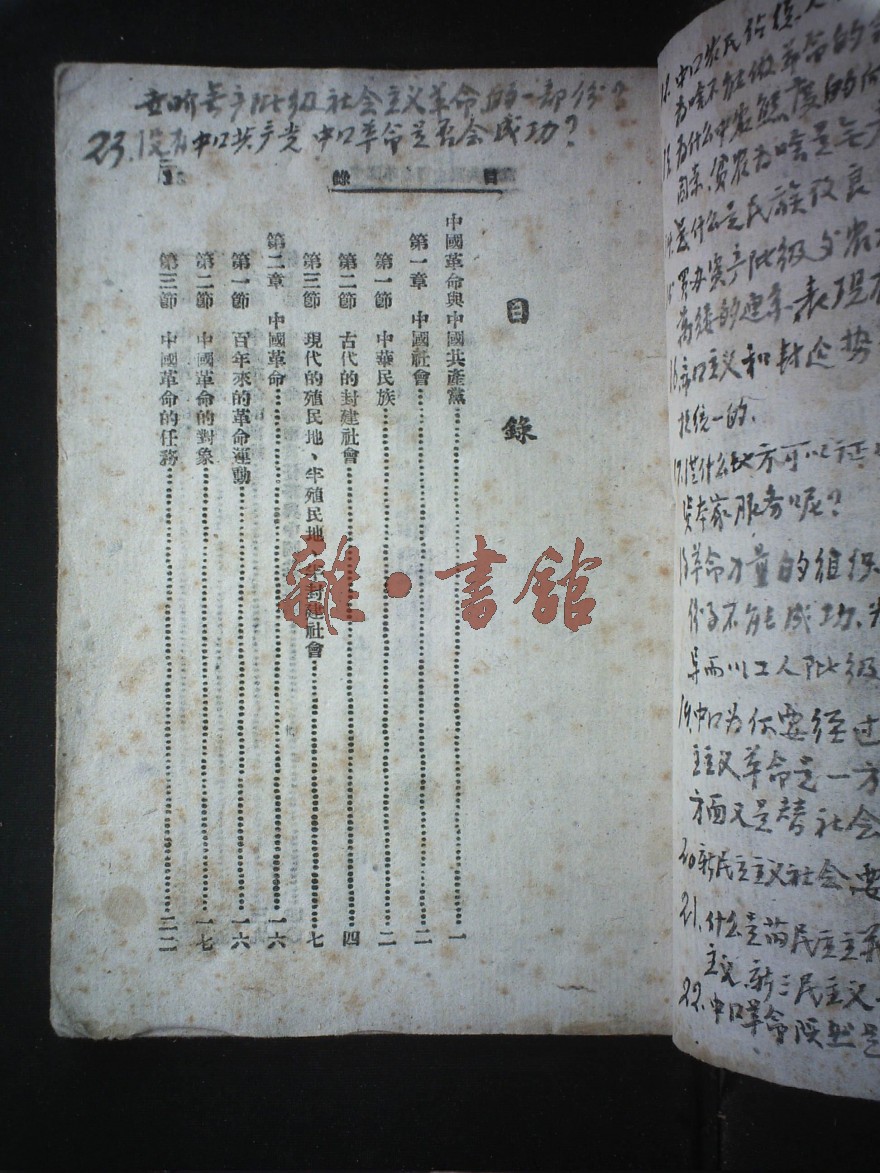 世界无产阶级社会主义革命的一部份?
23.没有中口共产党中口革命是否会成功?
目 錄
目 錄
中國革命與中國共產黨…………一
第一章 中國社會…………二
第一節 中華民族…………二
第二節 古代的封建社會…………四
第三節 現代的殖民地、半殖民地、半封建社會…………七
第二章 中國革命…………一六
第一節 百年來的革命運動…………一六
第二節 中國革命的對象…………一七
第三節 中國革命的任務…………二二
雜·書館
14.中口农民
为啥不能做革命的
为什么中农态度的
贫农为啥是
什么是民族改良
买办资产阶级
表现在
16.帝口主义和封建势
统一的、
17.什么地方可以证
资本家服务呢?
18.革命力量的组织
份子不能成功、
而以工人阶级
19.中口为什要经过
主主义革命是一方
方面又是替社会
20.新民主主义社会要
21.什么是旧民主主义
主义、新三民主义
22.中口革命既然是